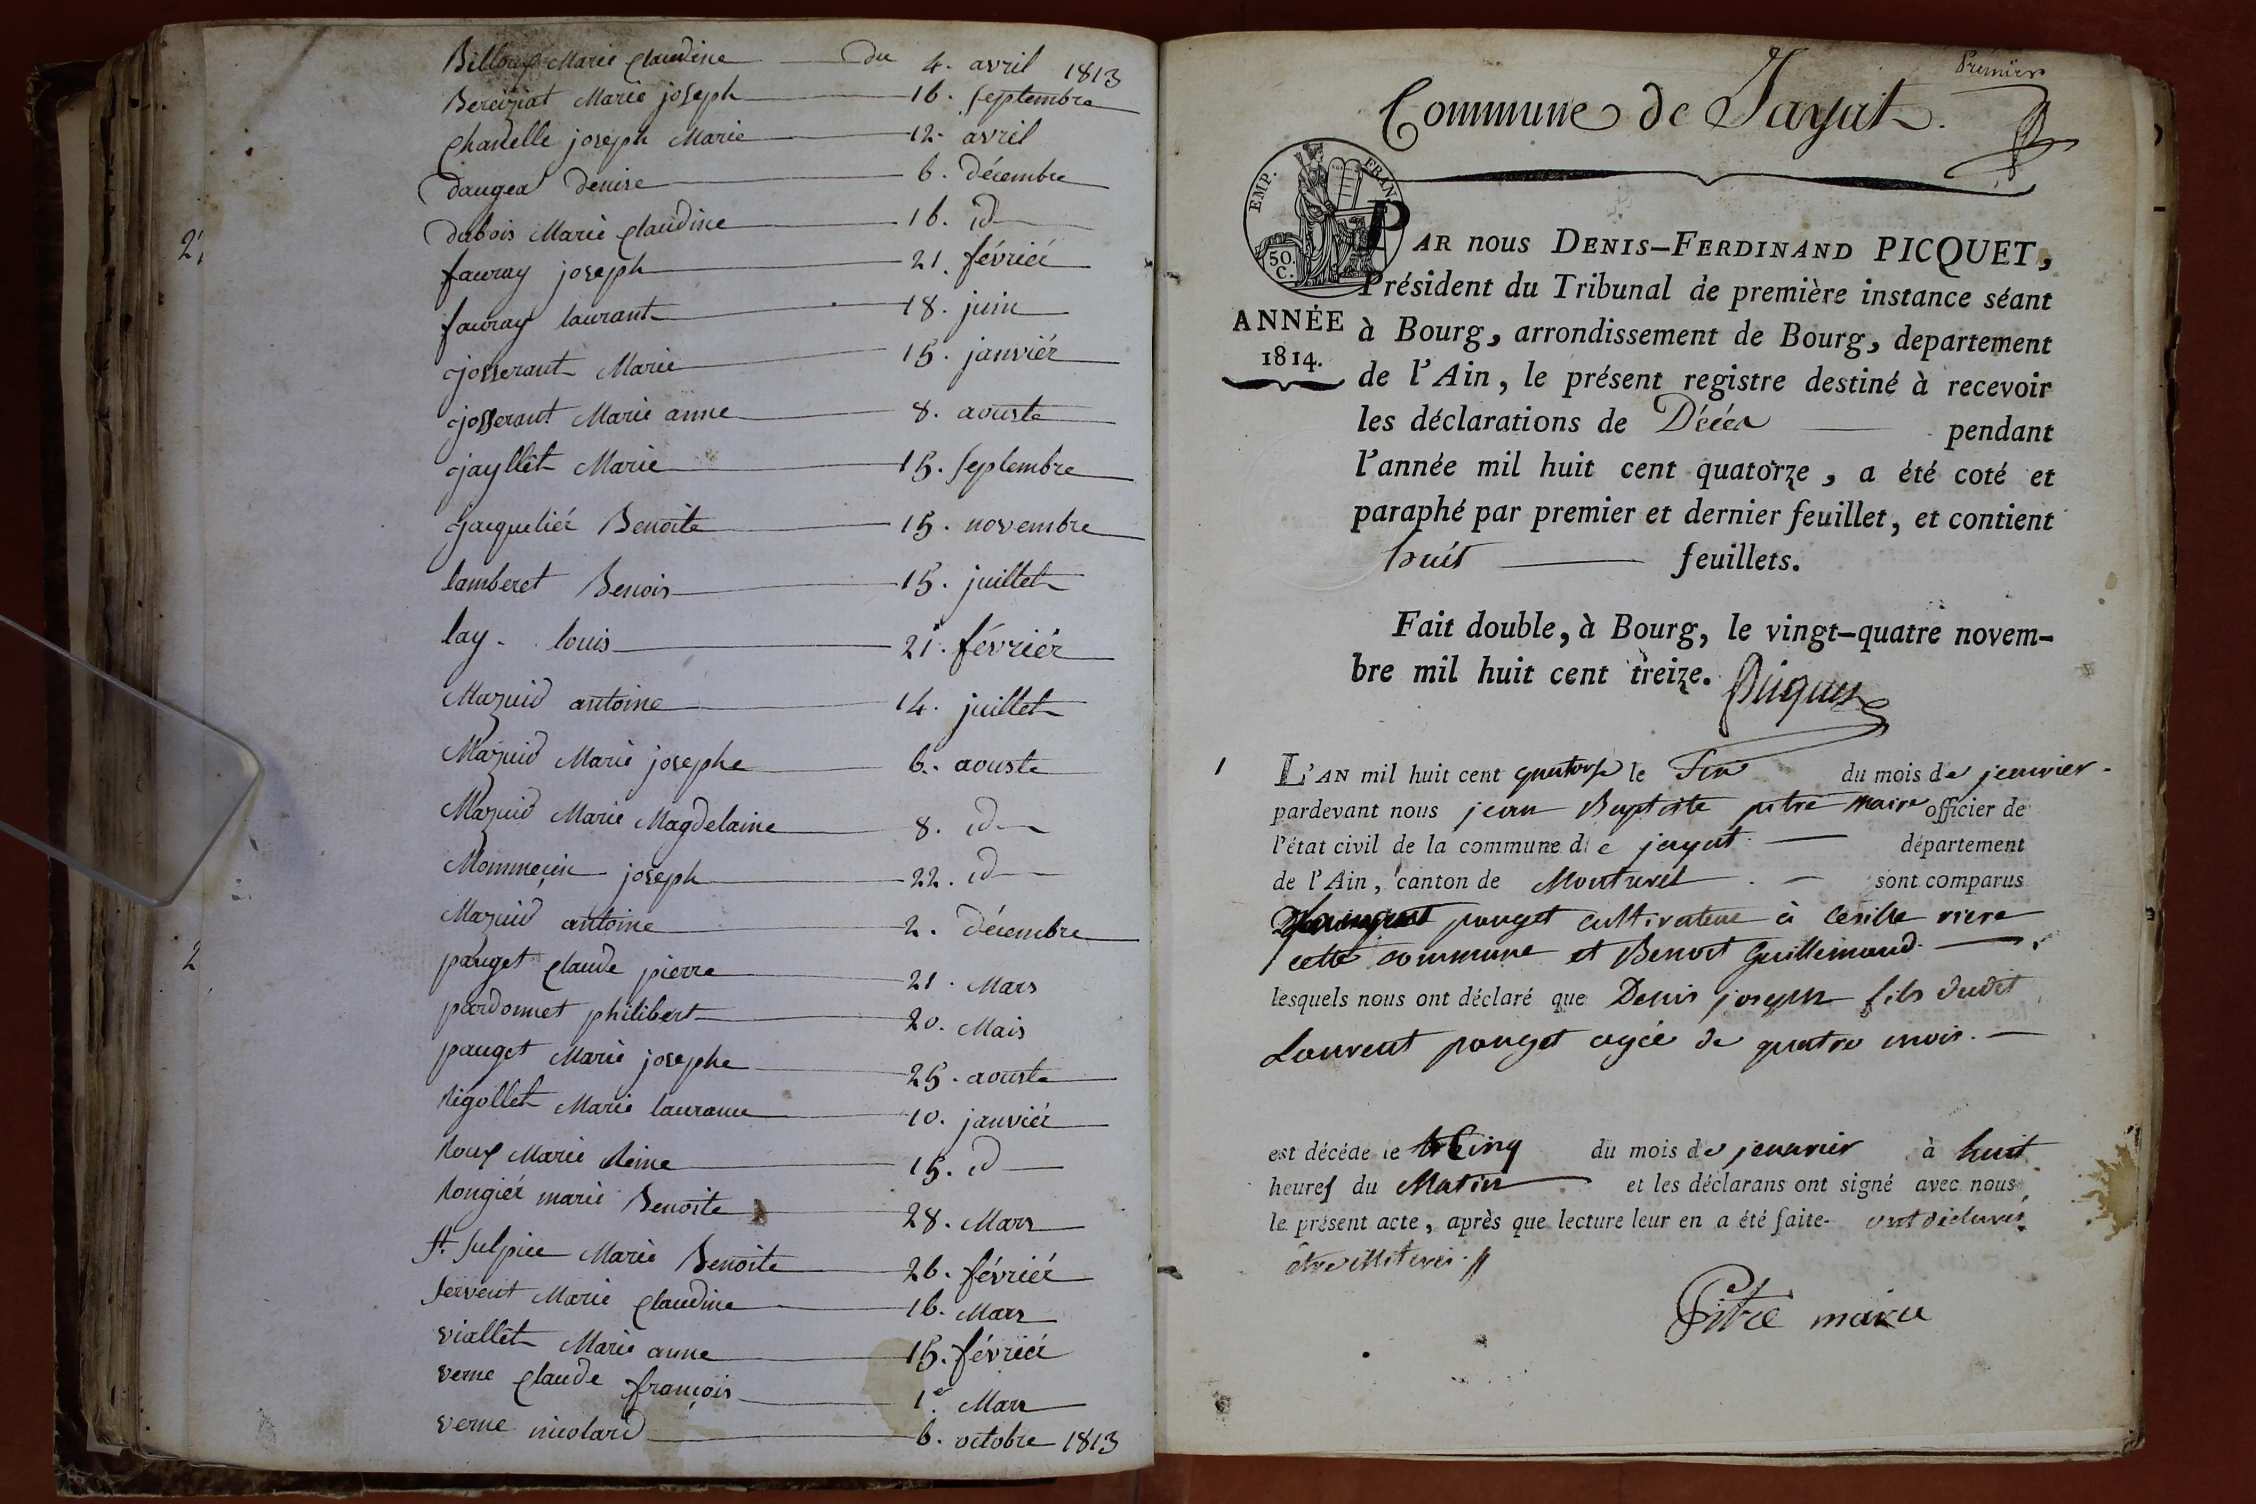 Billoux Marie Claudine du 4. avril 1813
Bereiziat Marie joseph 16. septembre
Chanelle joseph Marie 12. avril
daugea denise 6. décembre
dubois Marie Claudine 16. id
fauray joseph 21. février
fauray laurant 18. juin
josserant Marie 15. janviér
josserant Marie anne 8. aouste
jayllet Marie 15. septembre
jacqueliér Benoite 15. novembre
lamberet Benois 15. juillet
lay louis 21. févriér
Mazuid antoine 14. juillet
Mazuid Marie josephe 6. aouste
Mazuid Marie Magdelaine 8. id
Mommeçin joseph 22. id
Mazuid antoine 2. décembre
pauget Claude pierre 21. Mars
pardonnet philibert 20. Mais
pauget Marie josephe 25. aouste
Rigollet Marie 10. janviér
Roux Marie Reine 15. id
Rongiér marie Benoite 28. Mars
St. Sulpice Marie Benoite 26. févriér
servent Marie Claudine 16. Mars
viallet Marie anne 15. févriér
verne Claude françois 1er. Mars
verne nicolard 6. octobre 1813
2
2
Premier
Commune de Jayat.
EMP. FRAN.
50. C.
ANNÉE
1814.
PAR nous DENIS-FERDINAND PICQUET,
Président du Tribunal de première instance séant
à Bourg, arrondissement de Bourg, departement
de l'Ain, le présent registre destiné à recevoir
les déclarations de Décès pendant
l'année mil huit cent quatorze, a été coté et
paraphé par premier et dernier feuillet, et contient
huit feuillets.
Fait double, à Bourg, le vingt-quatre novem-
bre mil huit cent treize. Picquet
1 L'AN mil huit cent quatorse le du mois de jeanvier.
pardevant nous jean Baptiste pitre maire officier de
l'état civil de la commune de jayat département
de l'Ain, canton de Montrevel sont comparus
pouget cultivateur à
cette commune et Benoit Guillemaud
lesquels nous ont déclaré que Denis joseph fils dudit
Laurent pouget agée de quatre mois.
est décédé le Cinq du mois de jeanvier à huit
heures du Matin et les déclarans ont signé avec nous
le présent acte, après que lecture leur en a été faite. ont déclarés
être
Pitre maire